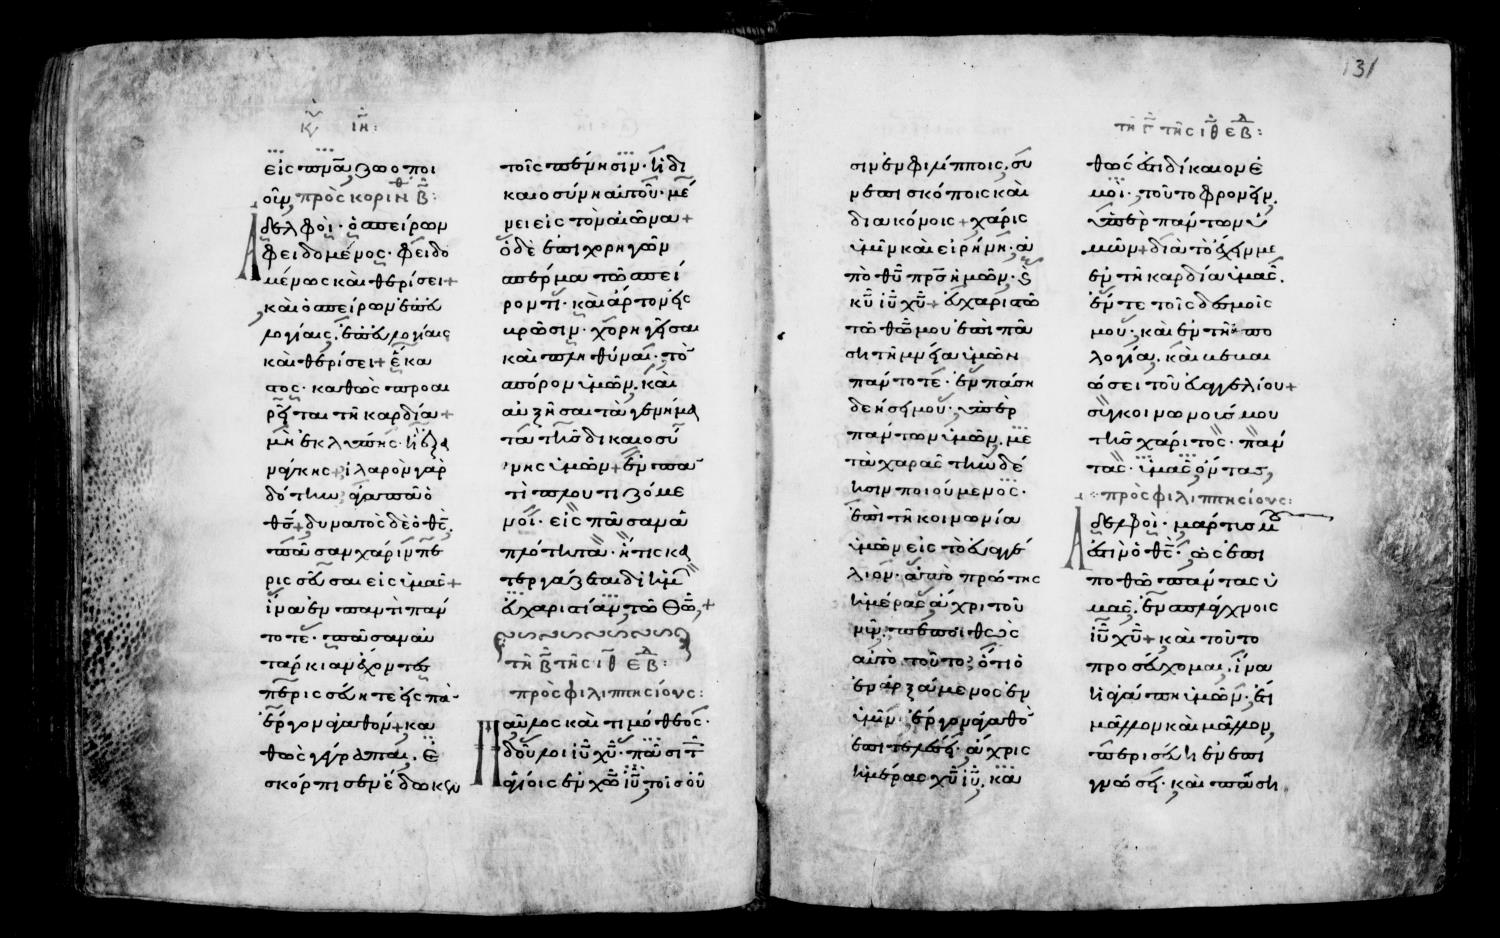 κυ ιη:
εἰς πν̅α ζωοποι
οῦν, πρὸς κορινθ β̅:
Ἀδελφοὶ· ὁ σπείρων
φειδομένος· φειδο
μένως καὶ θερίσει+
καὶ ὁ σπείρων ἐπ' εὐ
λογίαις, ἐπ' εὐλογίαις
καὶ θερίσει+ ἕκα
στος· καθὼς προαι
ρεῖται τῇ καρδία+
μὴ ἐκ λύπης· ἢ ἐξ ἀ
νάγκης+ ἱλαρὸν γὰρ
δότην ἀγαπᾶ ὁ
θς̅+ δυνατὸς δὲ ὁ θς̅,
πᾶσαν χάριν πε
ρισσεῦσαι εἰς ὑμᾶς+
ἵνα ἐν παντὶ πάν
τοτε· πᾶσαν αὐ
τάρκιαν ἔχοντες
περισεύητε εἰς πᾶ
ἔργον ἀγαθόν+ κα
θὼς γέγραπται, ἐ
σκόρπισεν ἔδωκεν
τοῖς πένησιν· ἡ δι
καιοσύνη αὐτοῦ· μέ
νει εἰς τὸν αἰῶνα+
ὁ δὲ ἐπιχορηγῶν
σπέρμα τῶ σπεί
ροντι· καὶ ἄρτον εἰς
βρῶσιν· χορηγῆσαι
καὶ πληθύναι· τὸ
σπόρον ὑμῶν, καὶ
αὐξῆσαι τὰ γενήμα
τα τῆς δικαιοσύ
νης ὑμῶν+ ἐν πα
τὶ πλουτιζόμε
νοι· εἰς πᾶσαν ἁ
πλότητα· ἥτις κα
τεργάζεται δι' ἡμῶ
εὐχαριστίαν, τῶ Θῶ,+
τῆ β̅ τῆς ιθ ἑβδ:
πρὸς φιλιππησίους:
Παῦλος καὶ τιμόθεος·
δοῦλοι ιυ̅ χυ̅· πᾶσι τοῖς
ἁγίοις ἐν χω̅ ιυ̅, τοῖς οὖ
131
τῆ γ̅ τῆς ιθ ἑβδ:
σιν ἐν φιλίπποις, συ
νεπισκόποις καὶ
διακόνοις+ χάρις
ὑμῖν καὶ εἰρήνη· ἀ
πὸ θυ̅ πρς̅ ἡμῶν· καὶ
κυ̅ ιυ̅ χυ̅+ εὐχαριστῶ
τῶ θῶ μου ἐπὶ πά
ση τῆ μνεία ὑμῶν
πάντοτε· ἐν πάση
δεήσει μου· ὑπὲρ
πάντων ὑμῶν, με
τὰ χαρᾶς τὴν δέ
ησιν ποιούμενος·
ἐπὶ τῆ κοινωνία
ὑμῶν εἰς τὸ εὐαγγέ
λιον· ἀπὸ πρώτης
ἡμέρας ἄχρι τοῦ
νῦν, πεποιθὼς
αὐτὸ τοῦτο, ὅτι ὁ
ἐναρξάμενος ἐν
ὑμῖν· ἔργον ἀγαθὸ
ἐπιτελέσει· ἄχρις
ἡμέρας χυ̅ ιυ̅, κα
θώς ἐστι δίκαιον ἐ
μοὶ· τοῦτο φρονεῖν,
ὑπὲρ πάντων ὑ
μῶν+ διὰ τὸ ἔχειν με
ἐν τῆ καρδία ὑμᾶς,
ἔν τε τοῖς δεσμοῖς
μου· καὶ ἐν τῆ ἀπο
λογία, καὶ βεβαι
ώσει τοῦ εὐαγγελίου+
σύγκοινωνοὺς μου
τῆς χάριτος· πάν
τας· ὑμᾶς ὄντας,
πρὸς φιλιππησίους:
Ἀδελφοὶ· μάρτυς μου
ἐστὶν ὁ θς̅· ὡς ἐπι
ποθῶ πάντας ὑ
μᾶς, ἐν σπλάγχνοις
ιυ̅ χυ̅+ καὶ τοῦτο
προσεύχομαι, ἵνα
ἡ ἀγάπη ὑμῶν· ἔτι
μᾶλλον καὶ μᾶλλον,
περισεύη ἐν ἐπι
γνώσει· καὶ πάση